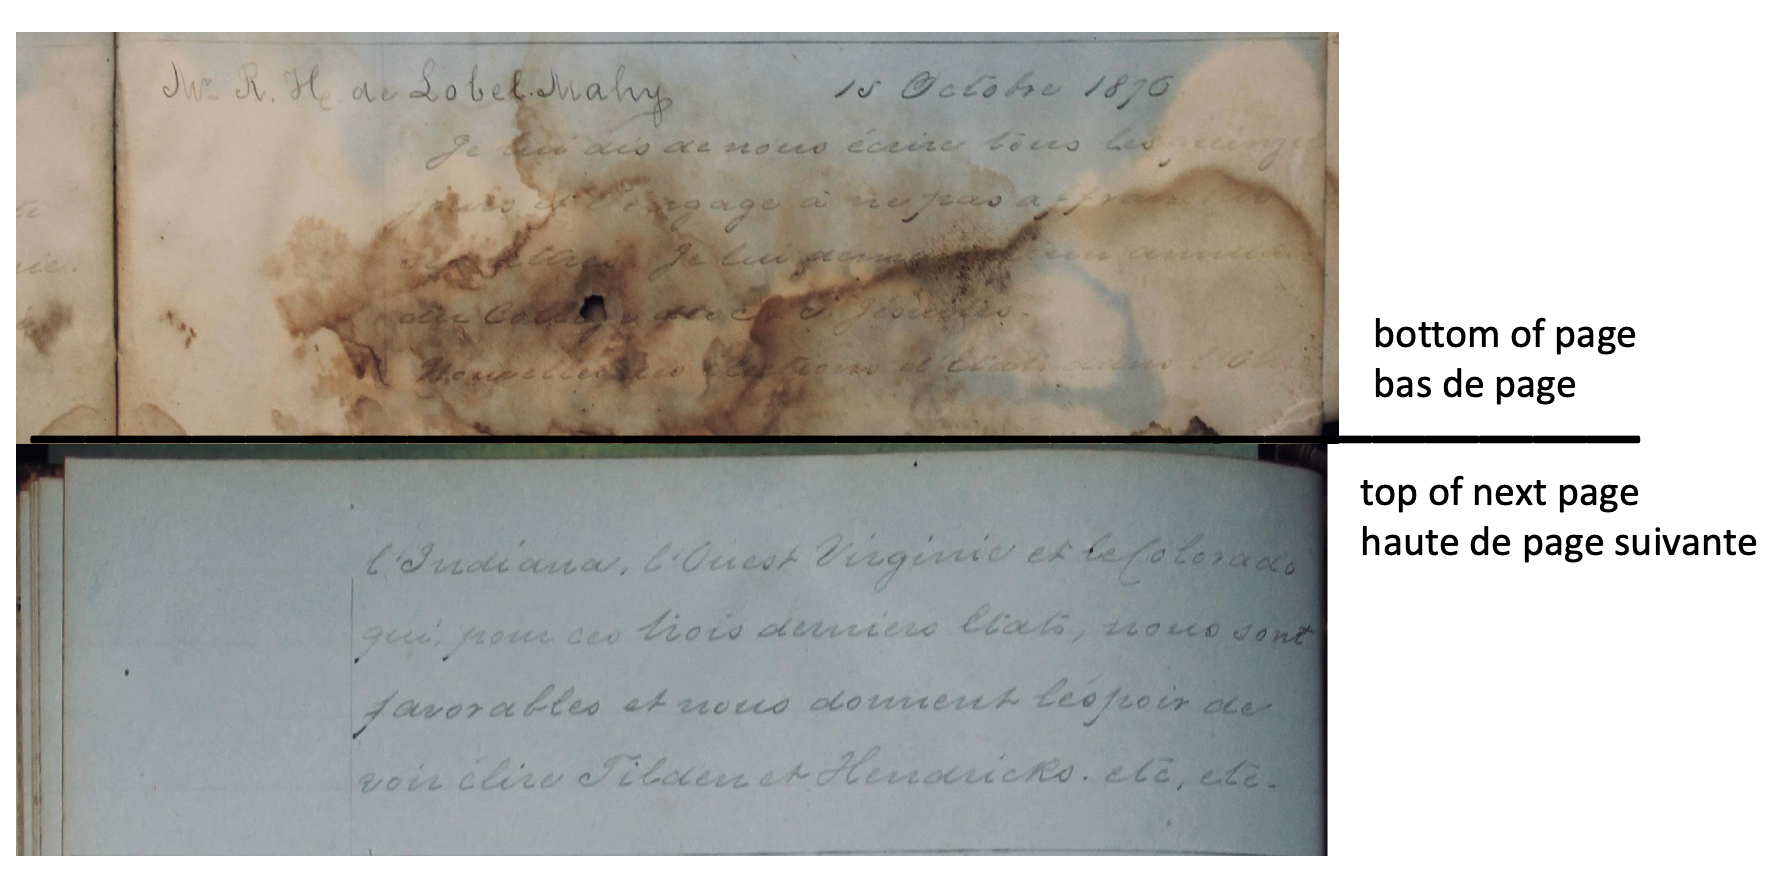 Mr. R. H. de Lobel-Mahy 15 Octobre 1876
Je lui dis de nous écrire tous les quinze
jours et l'engage à ne pas affranchir
ses lettres. Je lui demande un annuaire
du Collège des S. Jésuites.
Nouvelles des élections d'Etats dans l'Ohio
bottom of page
bas de page
l'Indiana, l'Ouest Virginie et le Colorado
qui, pour ces trois derniers Etats, nous sont
favorables et nous donnent l'espoir de
voir élire Tilden et Hendricks. etc, etc.
top of next page
haute de page suivante